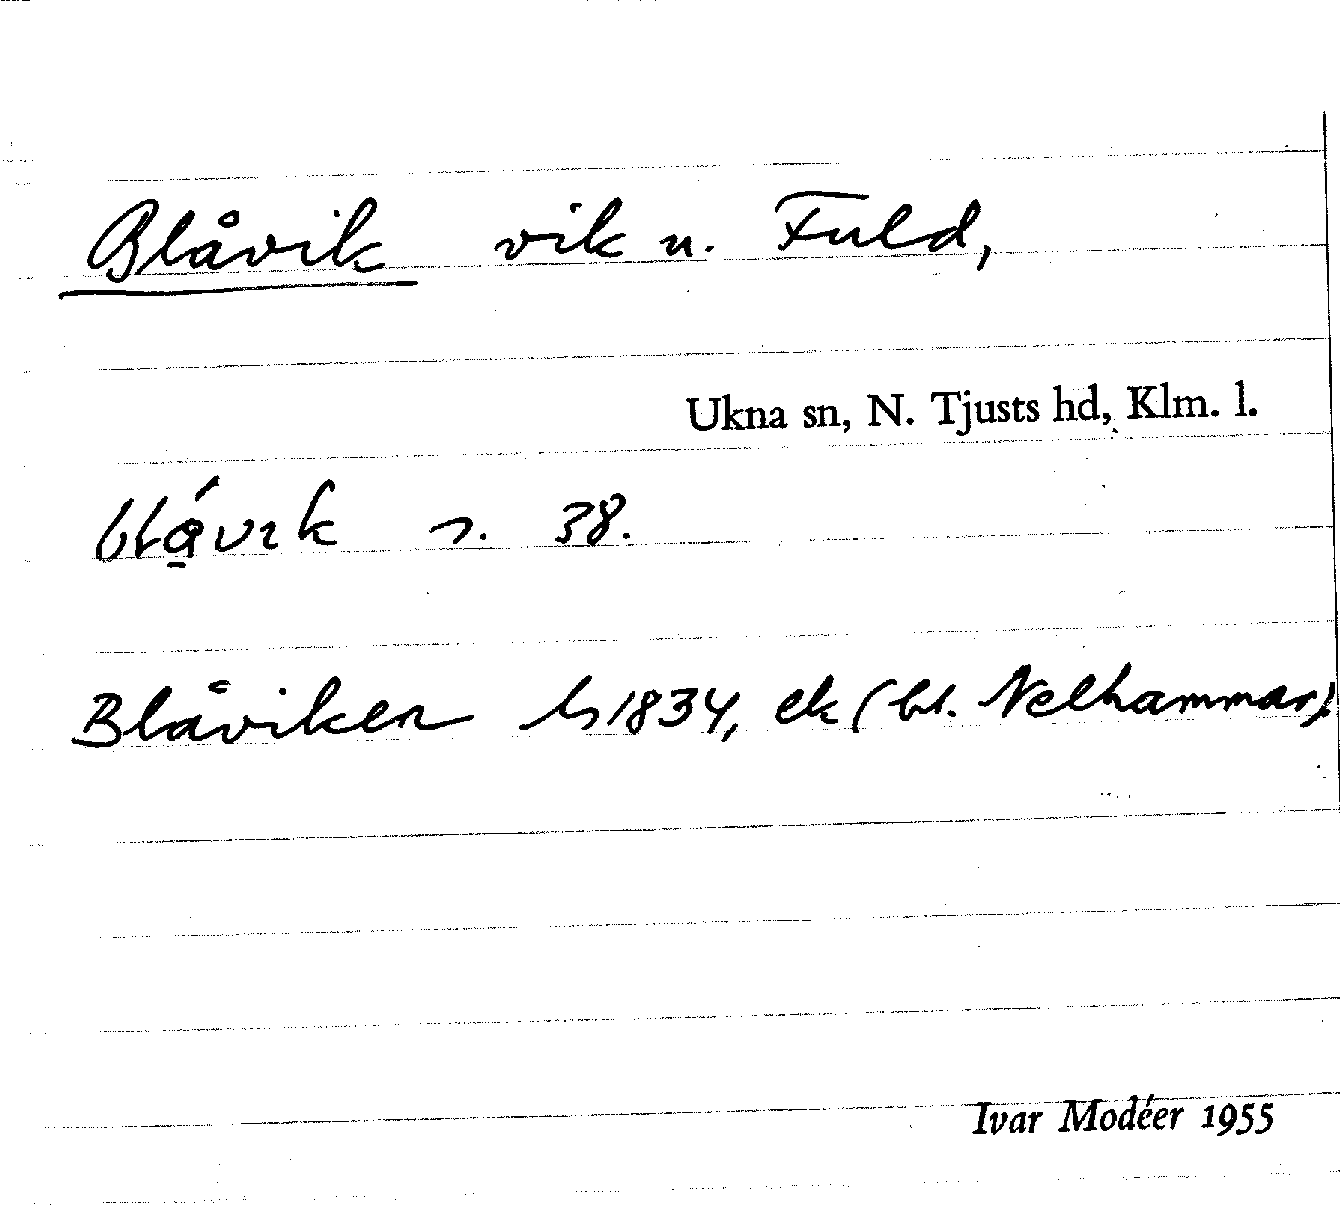 Blåvik vik u. Fuld,
Ukna sn, N. Tjusts hd, Klm. l.
s. 38.
Blåviken 1834, ek (bl. Nelhammar).
Ivar Modéer 1955